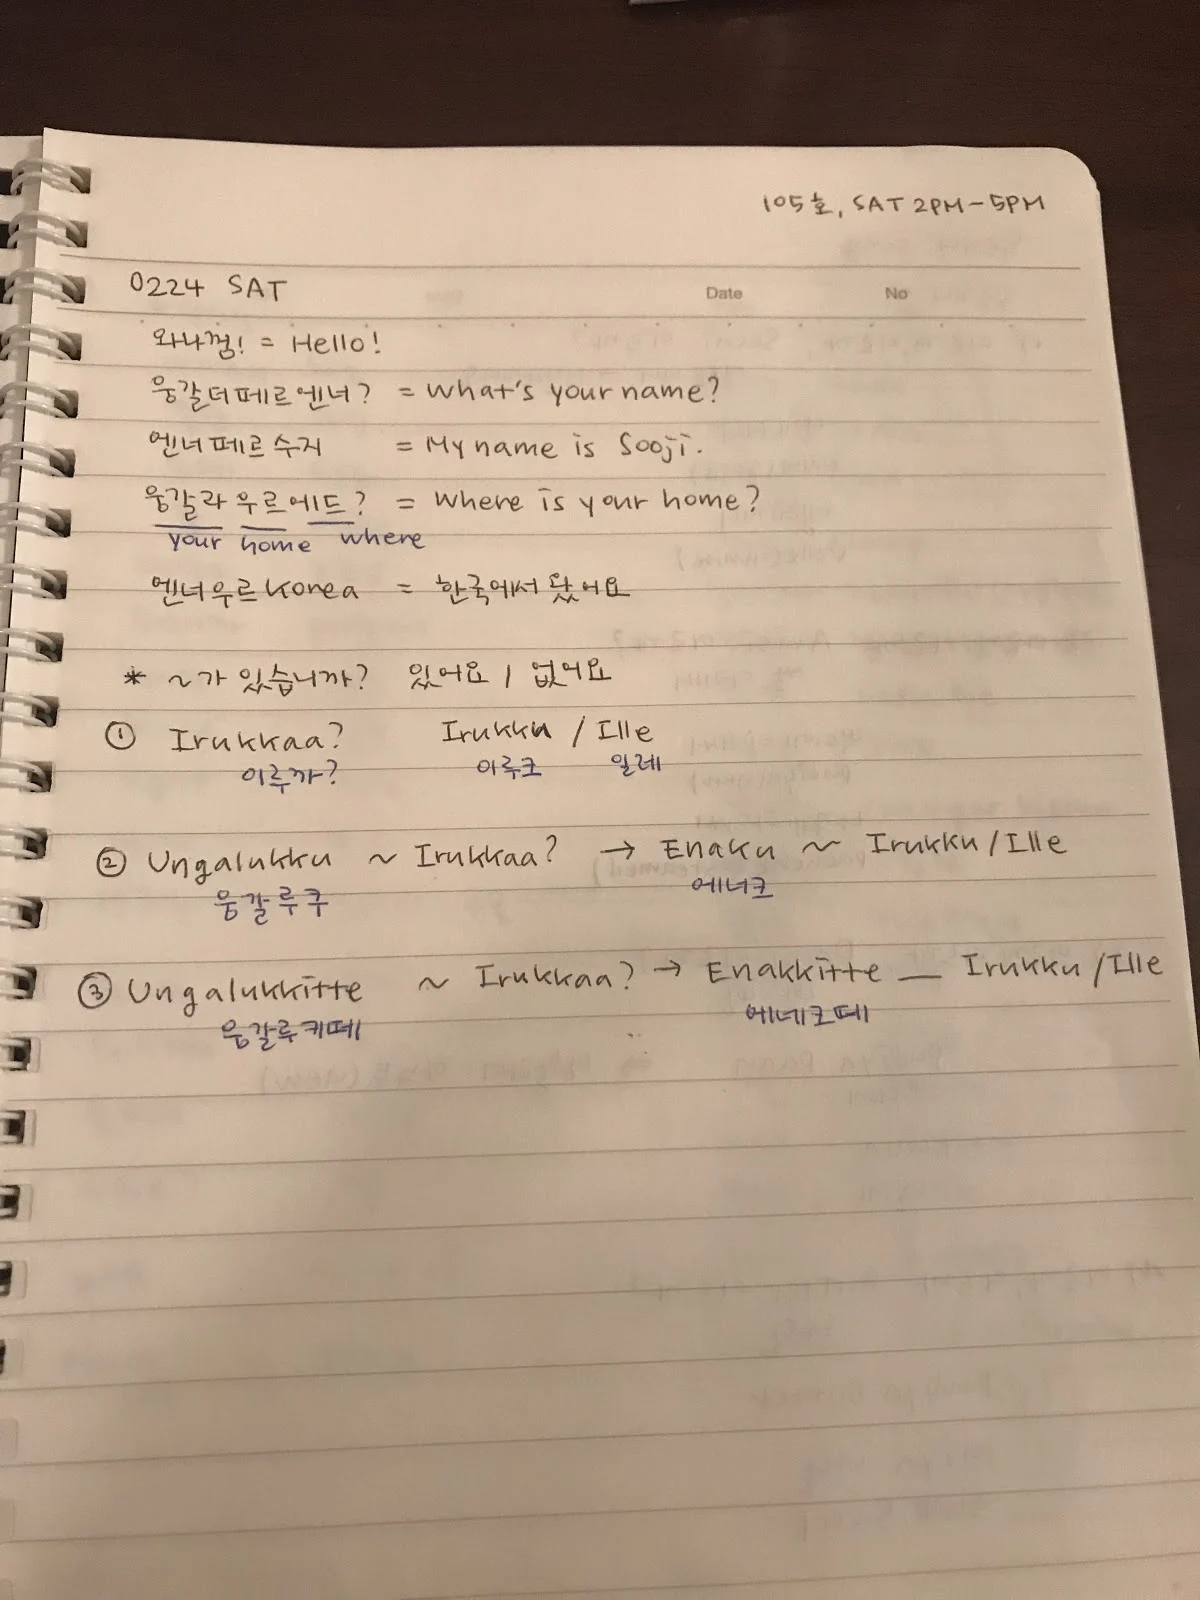 105호, SAT 2PM-5PM
0224 SAT
Date No
와나껌! = Hello!
웅갈더페르엔너? = What's your name?
엔너페르수지 = My name is Sooji.
웅갈라 우르에드? = Where is your home?
your home where
엔너우르 Korea = 한국에서 왔어요
* ~가 있습니까? 있어요 / 없어요
① Irukkaa? Irukku / Ille
이루까? 이루크 일레
② Ungalukku ~ Irukkaa? → Enaku ~ Irukku / Ille
웅갈루쿠 에너크
③ Ungalukkitte ~ Irukkaa? → Enakkitte — Irukku / Ille
웅갈루키떼 에네크떼